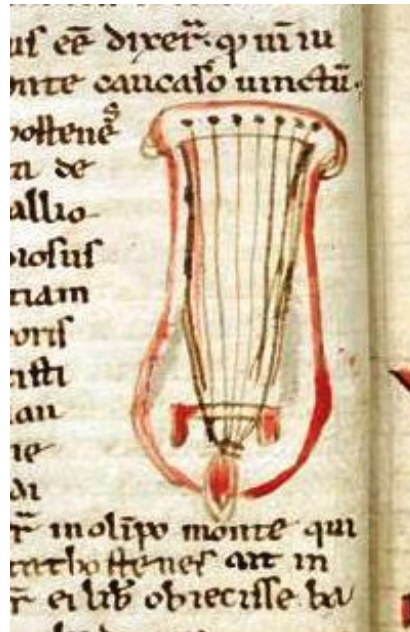 us eē dixer̄. qui iu
onte caucaso uinctū.
ostenes
ti de
allio
iosus
tiam
oris
isti
an
ne
di
r̄ in olīpo monte qui
rathostenes ait in
r̄ ei lib obiecisse ba